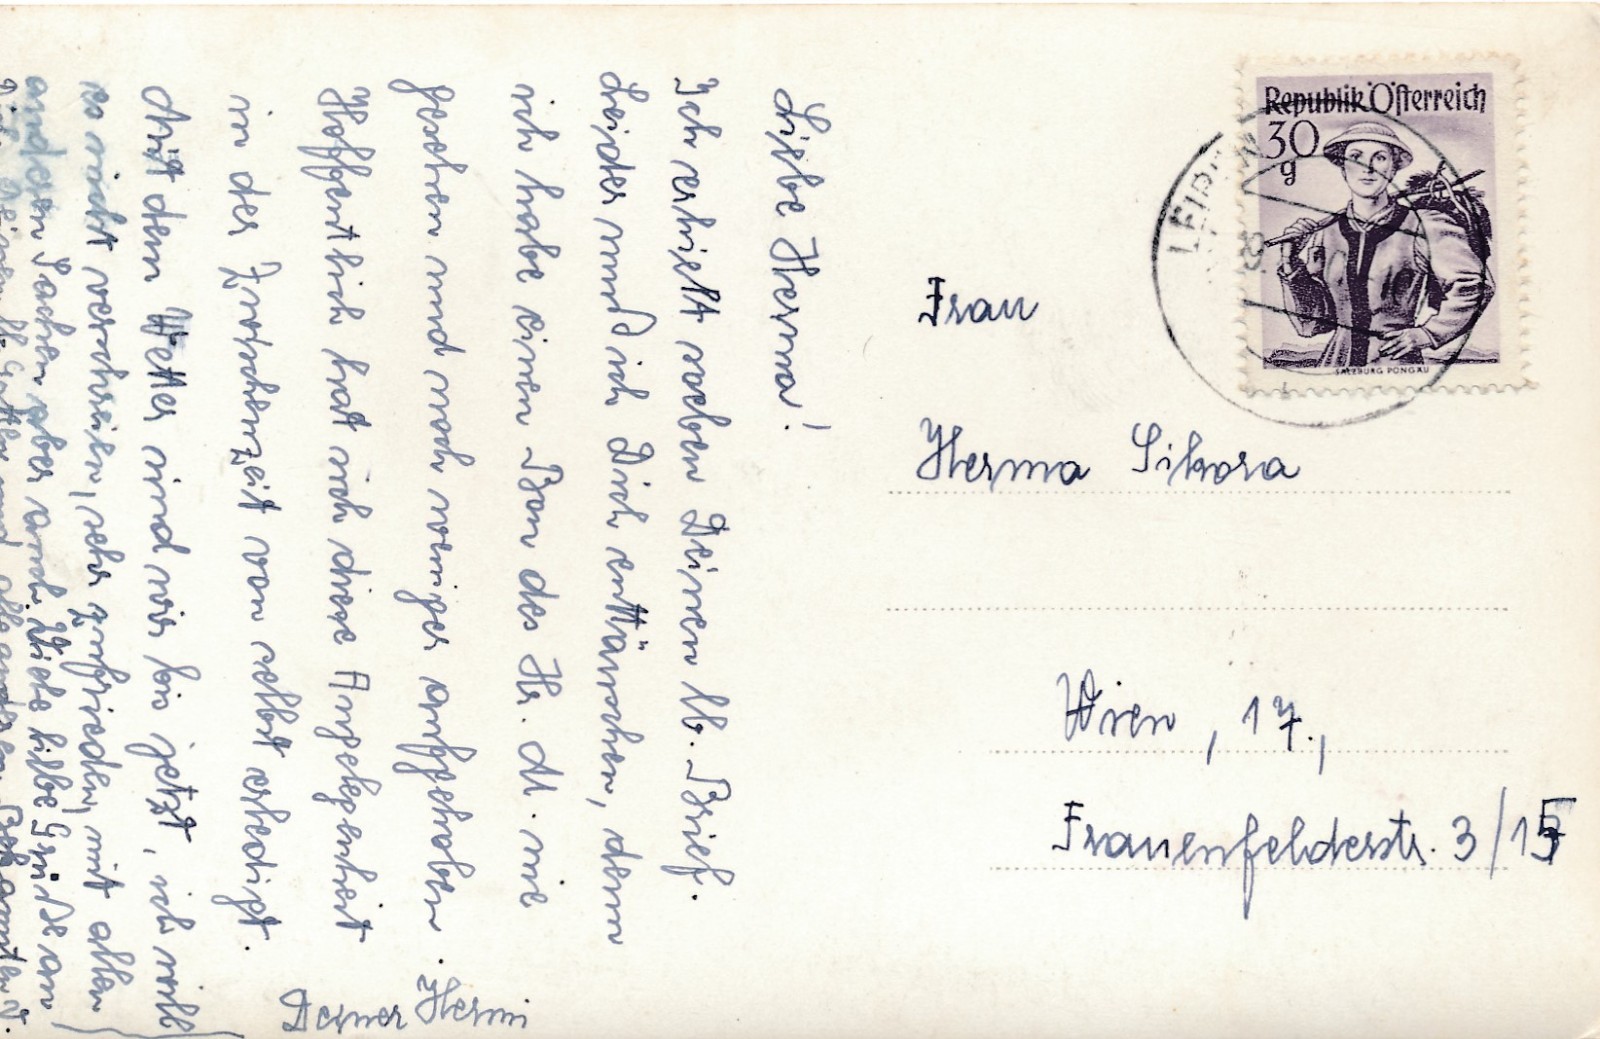 Liebe Herma!
Ich erhielt soeben Deinen lb. Brief.
Leider muß ich Dich enttäuschen, denn
ich habe einen Bon des Hr. M. nie
gesehen und noch weniger aufgehoben.
Hoffentlich hat sich diese Angelegenheit
in der Zwischenzeit von selbst erledigt.
Mit dem Wetter sind wir bis jetzt, ich will
es nicht verschreien, sehr zufrieden, mit allen
anderen Sachen aber auch. Viele liebe Grüße an
Dich, Deinen lb. Gatten und alle anderen Bekannten v.
Deiner Hermi
Republik Österreich
30
g
SALZBURG PONGAU
Frau
Herma Sikora
Wien, 17.,
Frauenfelderstr. 3/15